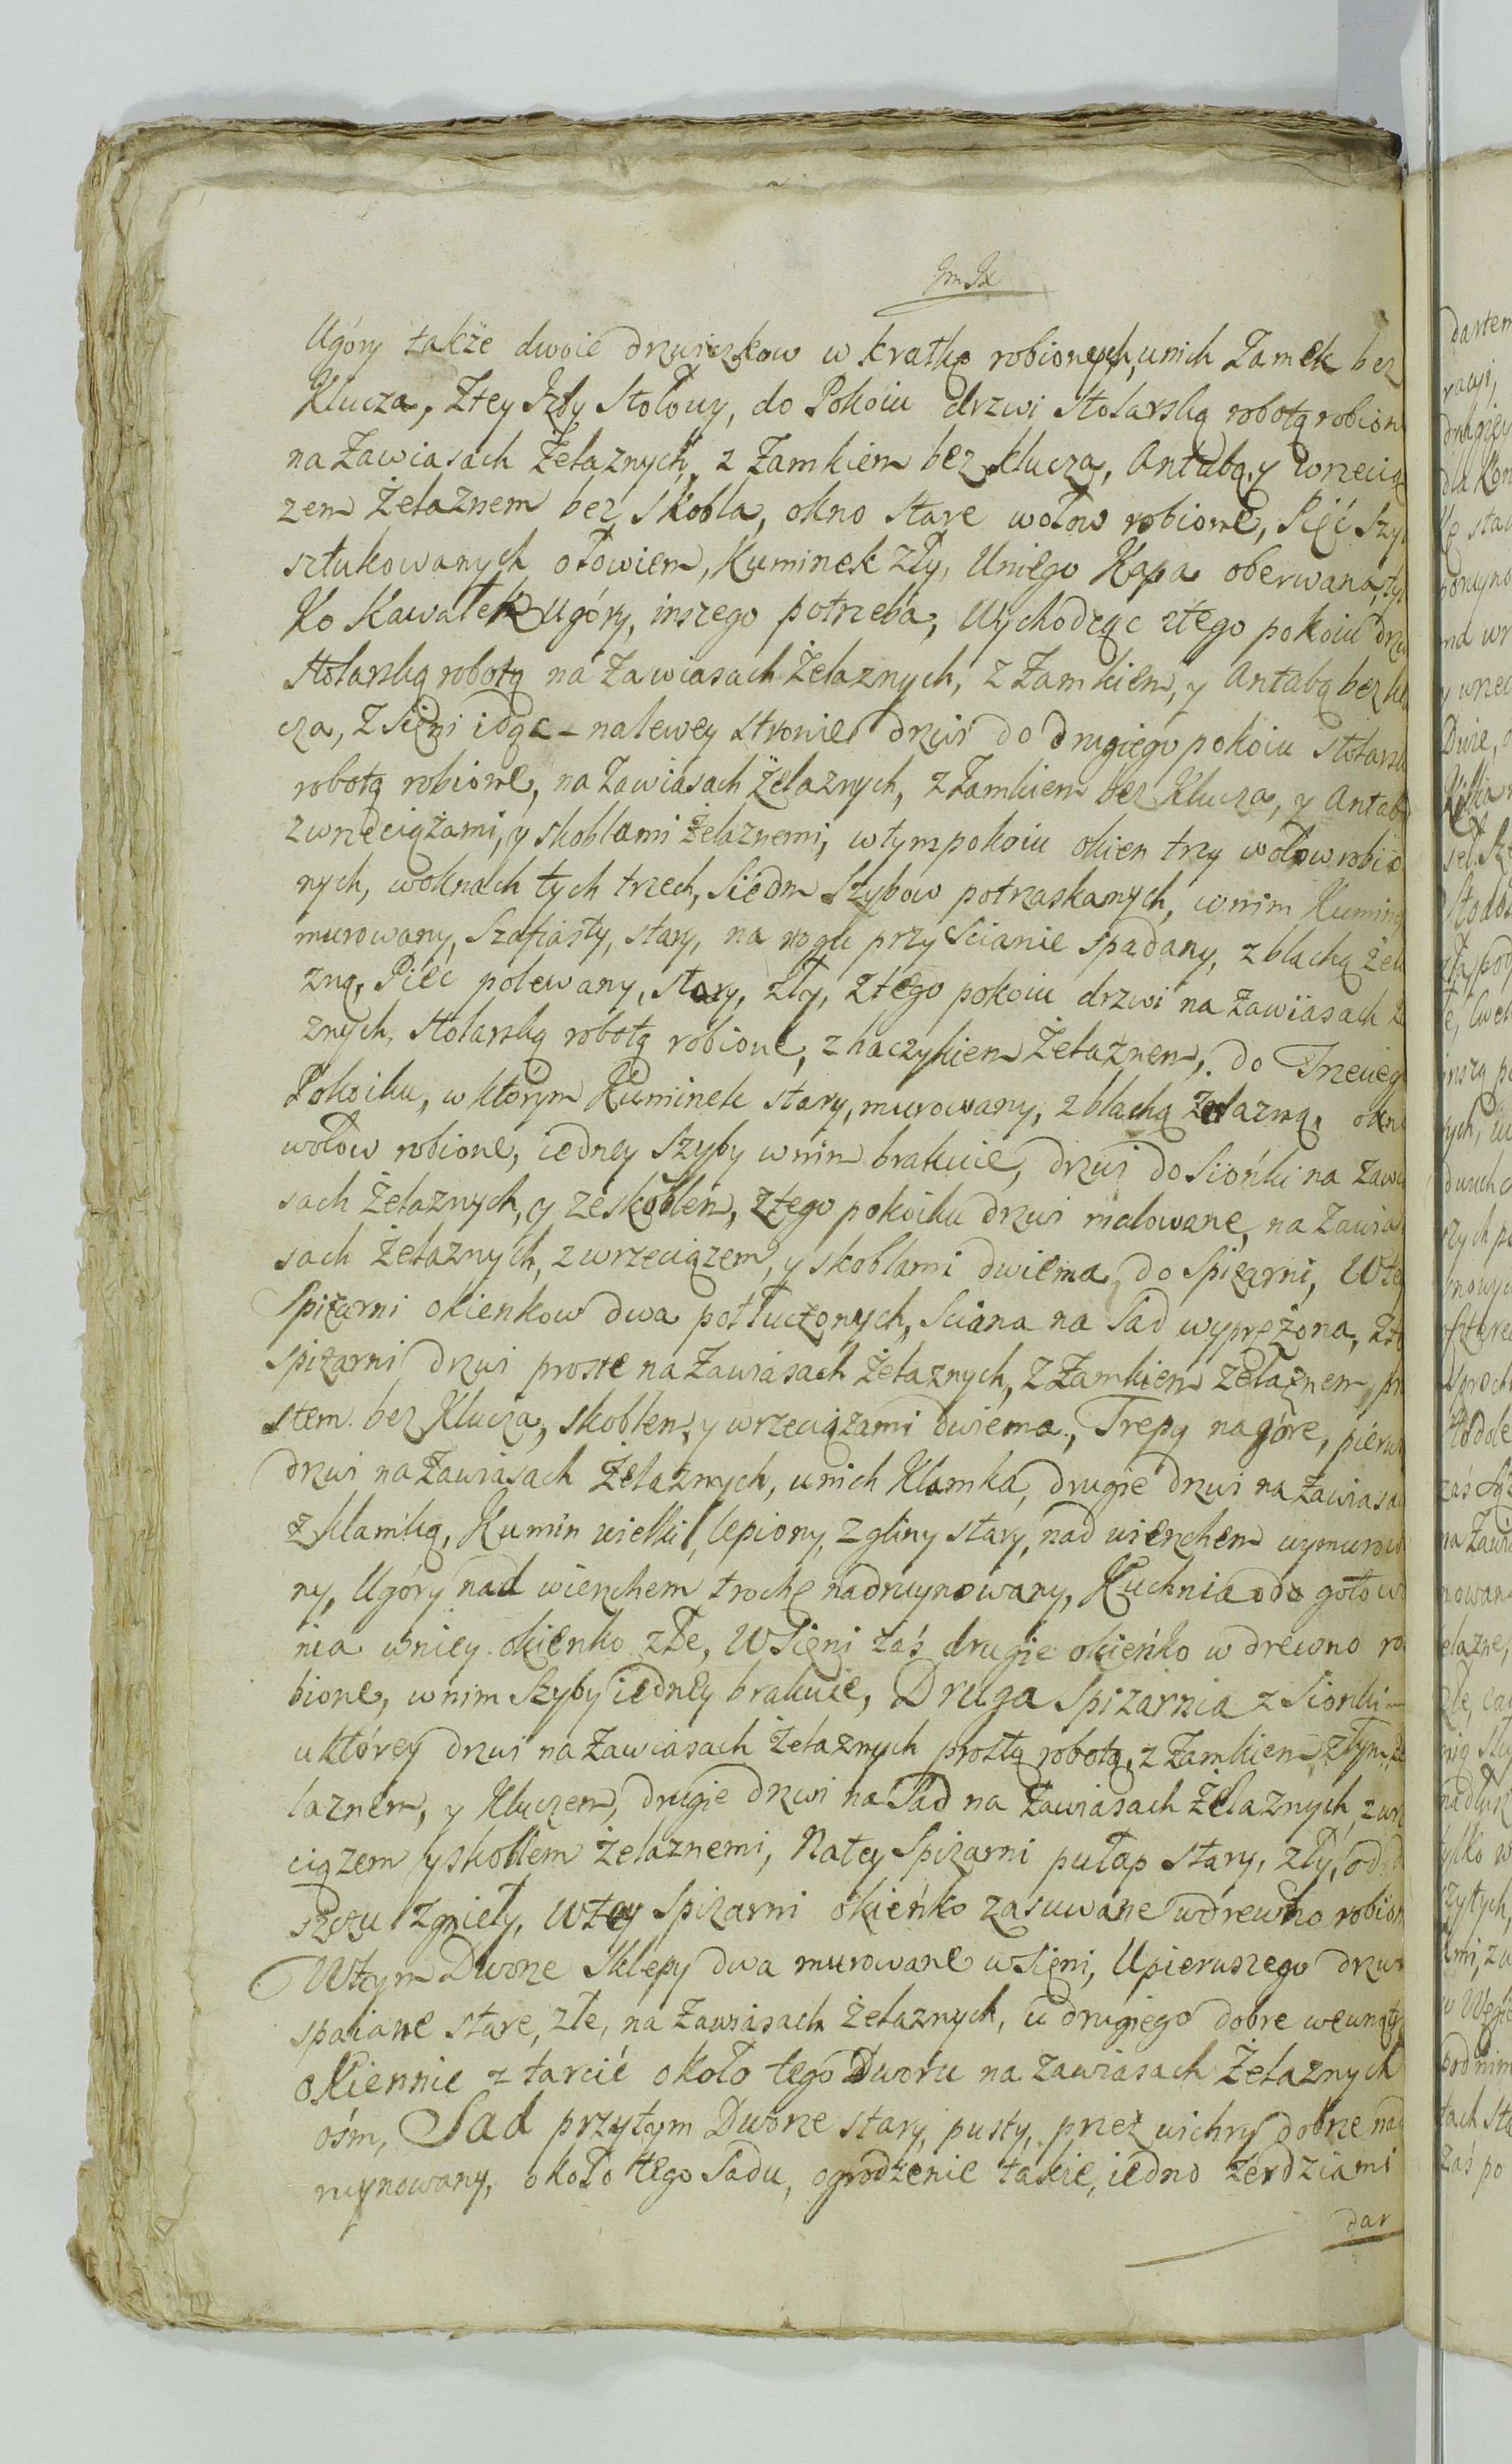 Ugóry także dwoie drzwiczkow w kratkę robionych, unich Zamek bez
Klucza, Ztey Izby Stołowy, do Pokoiu drzwi Stolarską robotą robion
na Zawiasach Żelaznych, z Zamkiem bez klucza, Antabą, y wrzecią
zem Żelaznem bez Skobla, okno stare wołow robione, Pięć Szy
sztukowanych ołowiem, Kuminek zły, Uniego Kapa oberwana, tyl
ko Kawałek Ugóry, inszego potrzeba, Wychodząc ztego pokoiu drzw
Stolarską robotą na Zawiasach Żelaznych, z Zamkiem, y Antabą bez klu
cza, Z Sięni idąc – nalewey stronie drzwi do drugiego pokoiu Stolarsk
robotą robione, na Zawiasach Żelaznych, z Zamkiem bez Klucza, y Antab
zwrzeciążami, y skoblami Żelaznemi, wtym pokoiu okien trzy wołow robio
nych, woknach tych trzech, Siedm Szybow potrzaskanych, wnim Kumine
murowany, Szafiasty, stary, na rogu przy Scianie spadany, z blachą żela
zną, Piec polewany, stary, zły, Ztego pokoiu drzwi na Zawiasach Że
znych, Stolarską robotą robione, z haczykiem Żelaznem, do Trzecieg
Pokoiku, w którym Kuminek stary, murowany, z blachą żelazną, okn
wołow robione, iedney Szyby wnim brakuie, drzwi do Sionki na Zawi
sach Żelaznych, y zeskoblem, Ztego pokoiku drzwi malowane, na Zawia
sach Żelaznych, z wrzeciązem, y skoblami dwiema, do Spiżarni, Wte
Spiżarni okienkow dwa potłuczonych, Sciana na Sad wyprężona, Zte
spiżarni drzwi proste na Zawiasach Żelaznych, Z Zamkiem żelaznem pro
stem bez Klucza, skoblem, y wrzeciążami dwiema, Trepy nagórę, pierw
drzwi na Zawiasach Żelaznych, unich Klamka, drugie drzwi na Zawiasa
z klamką, Kumin wielki, lepiony, z gliny stary, nad wierzchem wymurow
ny, Ugóry nad wierzchem trochę nadruynowany, Kuchnia do gotow
nia wniey okienko złe, W Sięni zaś drugie okieńko w drewno ro
bione, wnim Szyby iedney brakuie, Druga Spiżarnia z Sionki
uktórey drzwi na Zawiasach żelaznych prostą robotą, z Zamkiem złym, że
laznem, y Kluczem, drugie drzwi na Sad na Zawiasach Żelaznych, z wrz
ciązem y skoblem Żelaznemi, Natey Spiżarni pułap stary, zły, od d
szczu zgniły, wtey Spiżarni okieńko zasuwane wdrewno robion
Wtym Dworze Sklepy dwa murowane wsięni, Upierwszego drzw
spaiane stare, złe, na Zawiasach żelaznych, u drugiego dobre wewnątr
okiennic z tarcić około tego Dworu na Zawiasach Żelaznych
ośm, Sad przytym Dworze stary, pusty, przez wichry dobrze nad
ruynowany, około tego Sadu, ogrodzenie takie, iedno żerdziami
dar